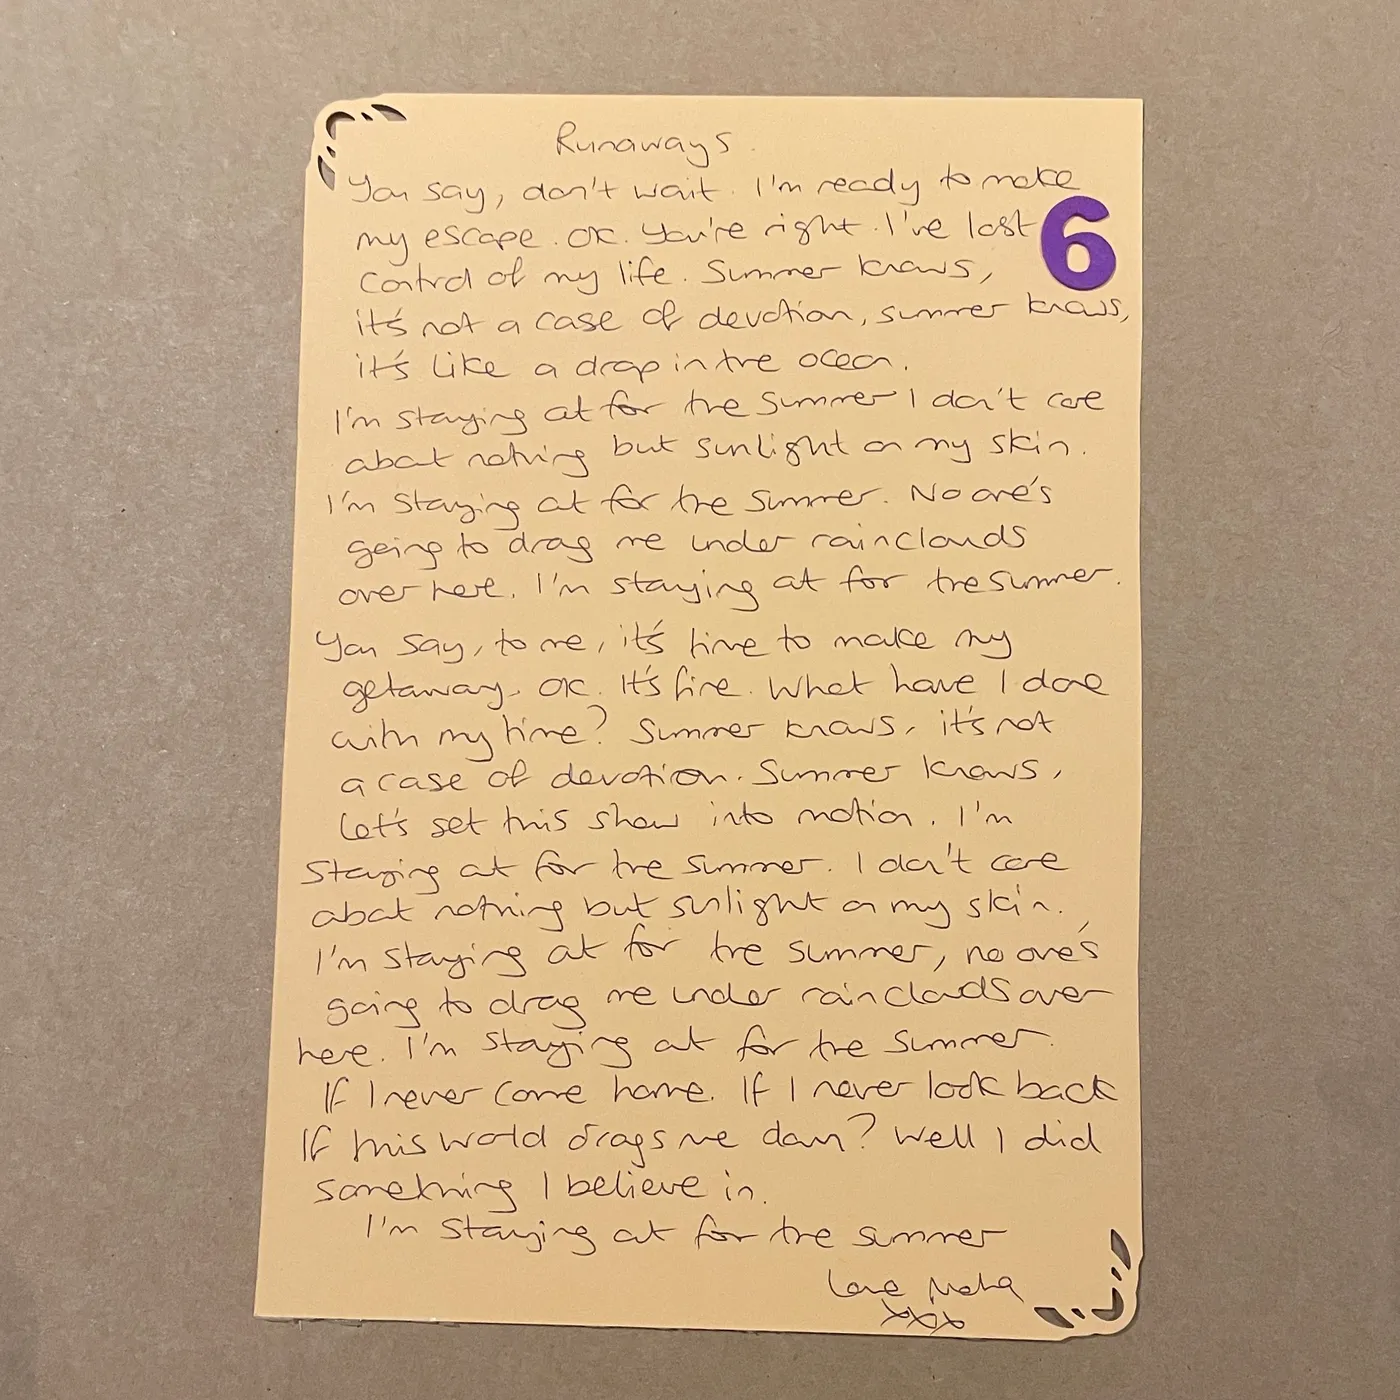 Runaways.
You say, don't wait. I'm ready to make
my escape. OK. You're right. I've lost
6
control of my life. Summer knows,
it's not a case of devotion, summer knows,
it's like a drop in the ocean.
I'm staying out for the summer I don't care
about nothing but sunlight on my skin.
I'm staying out for the summer. No one's
going to drag me under rainclouds
over here. I'm staying out for the summer.
You say, to me, it's time to make my
getaway. OK. It's fine. What have I done
with my time? Summer knows, it's not
a case of devotion. Summer knows,
Let's set this show into motion. I'm
staying out for the summer. I don't care
about nothing but sunlight on my skin.
I'm staying out for the summer, no one's
going to drag me under rainclouds over
here. I'm staying out for the summer.
If I never come home. If I never look back
If this world drags me down? Well I did
something I believe in.
I'm staying out for the summer
Love
xxx